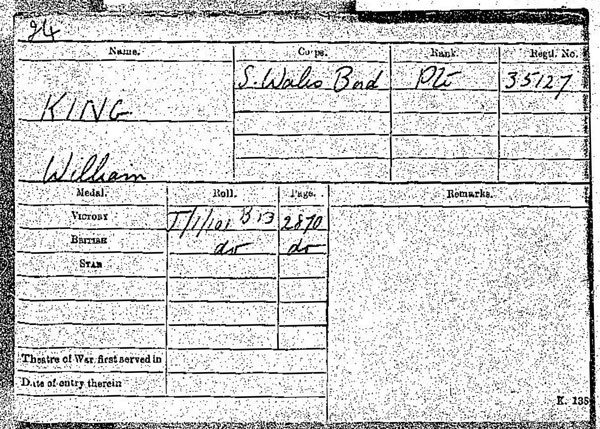 24
Name. Corps. Rank. Regtl. No.
S. Wales Bord Pte 35127
KING
William
Medal. Roll. Page. Remarks.
VICTORY J/1/101 B13 2870
BRITISH do do
STAR
Theatre of War first served in
Date of entry therein
K. 135